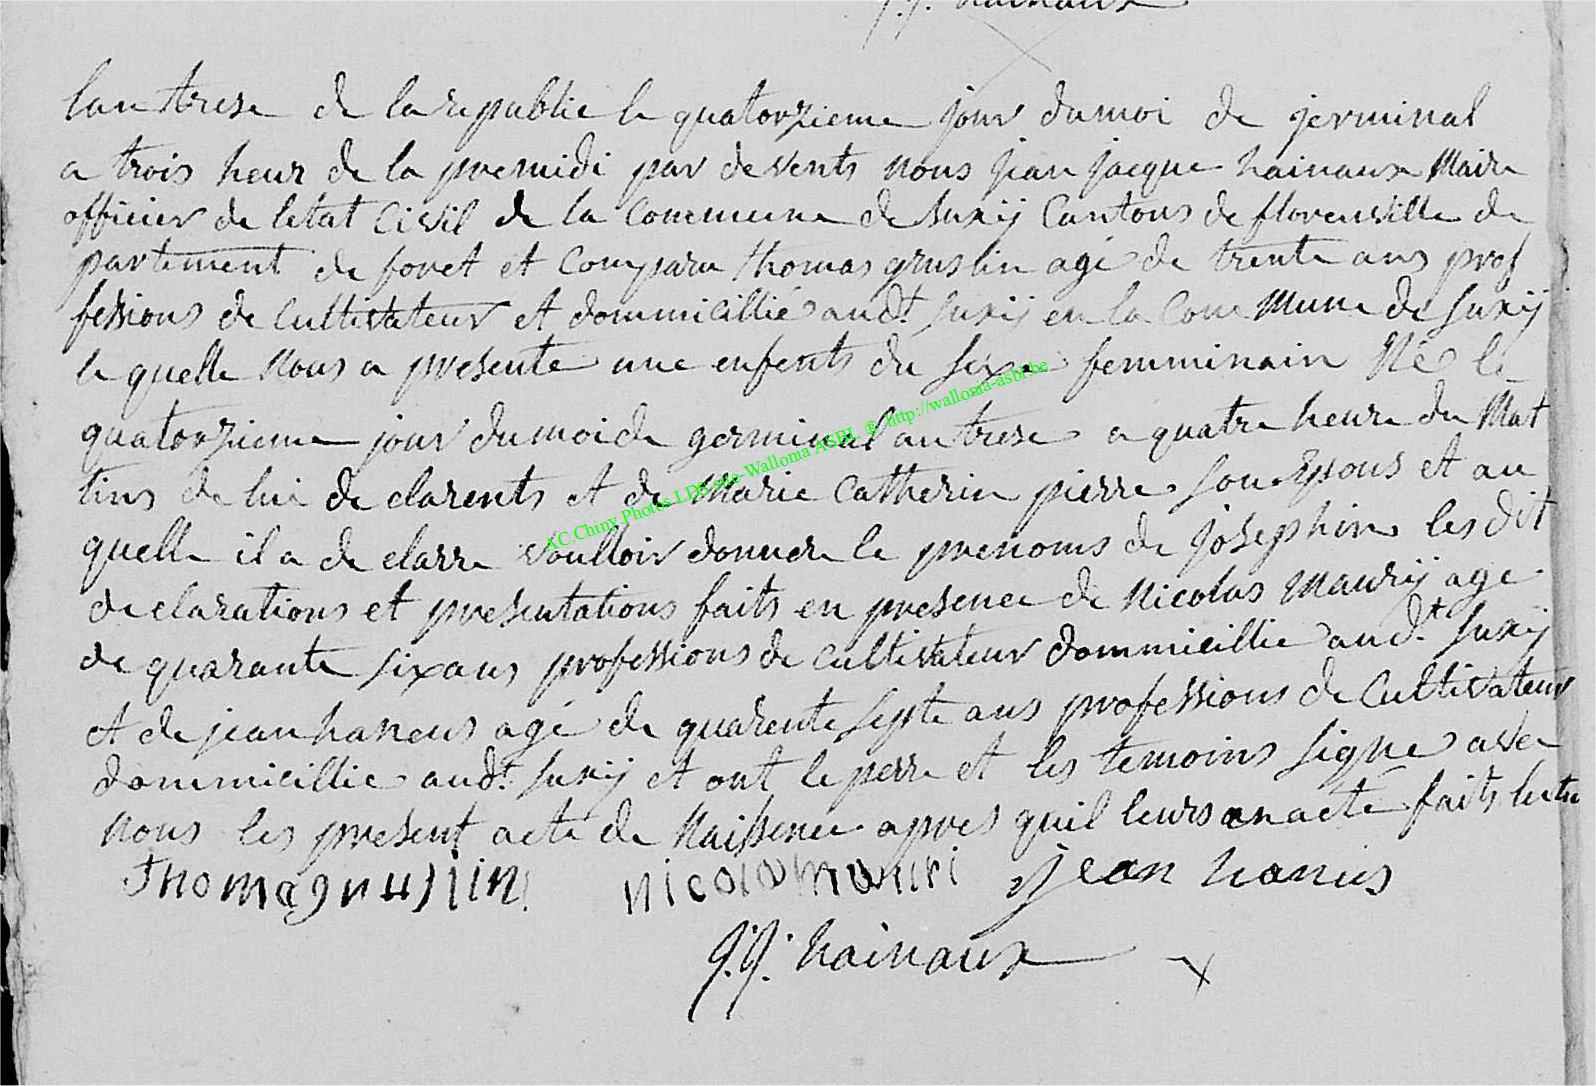 J.J. hainaux
lan trese de la republic le quatorzieme jour du moi de jerminal
a trois heur de la premidi par devents nous jean jacque hainaux Maire
officier de letat Civil de la Commune de Suxij Cantons de florenville de
partement de foret et Comparu thomas gruslin agé de trente ans prof
fessions de Cultivateur et dommicillié aud.t Suxij en la Com Mune de Suxij
le quelle Nous a presente une enfents du sexe femminain Né le
quatorzieme jour du moi de germinal an trese a quatre heure du Mat
tins de lui de clarents et de Marie Catherin pierre son Epous et au
quelle il a de clarre voulloir donner le prenoms de josephine les dit
de clarations et presentations faits en presence de Nicolas Maurij age
de quarante six ans professions de Cultivateur dommicillie aud.t Suxij
et de jean haneus agé de quarente septe ans professions de Cultivateur
dommicillie aud.t Suxij et ont le perre et les temoins signe avec
Nous les present acte de Naissence apres quil leurs en acté faits lectu
Thomagruslin nicola mauri jean hanius
J.J. hainaux
AC Chiny Photos LDB pour Walloma ASBL @ http://walloma-asbl.be